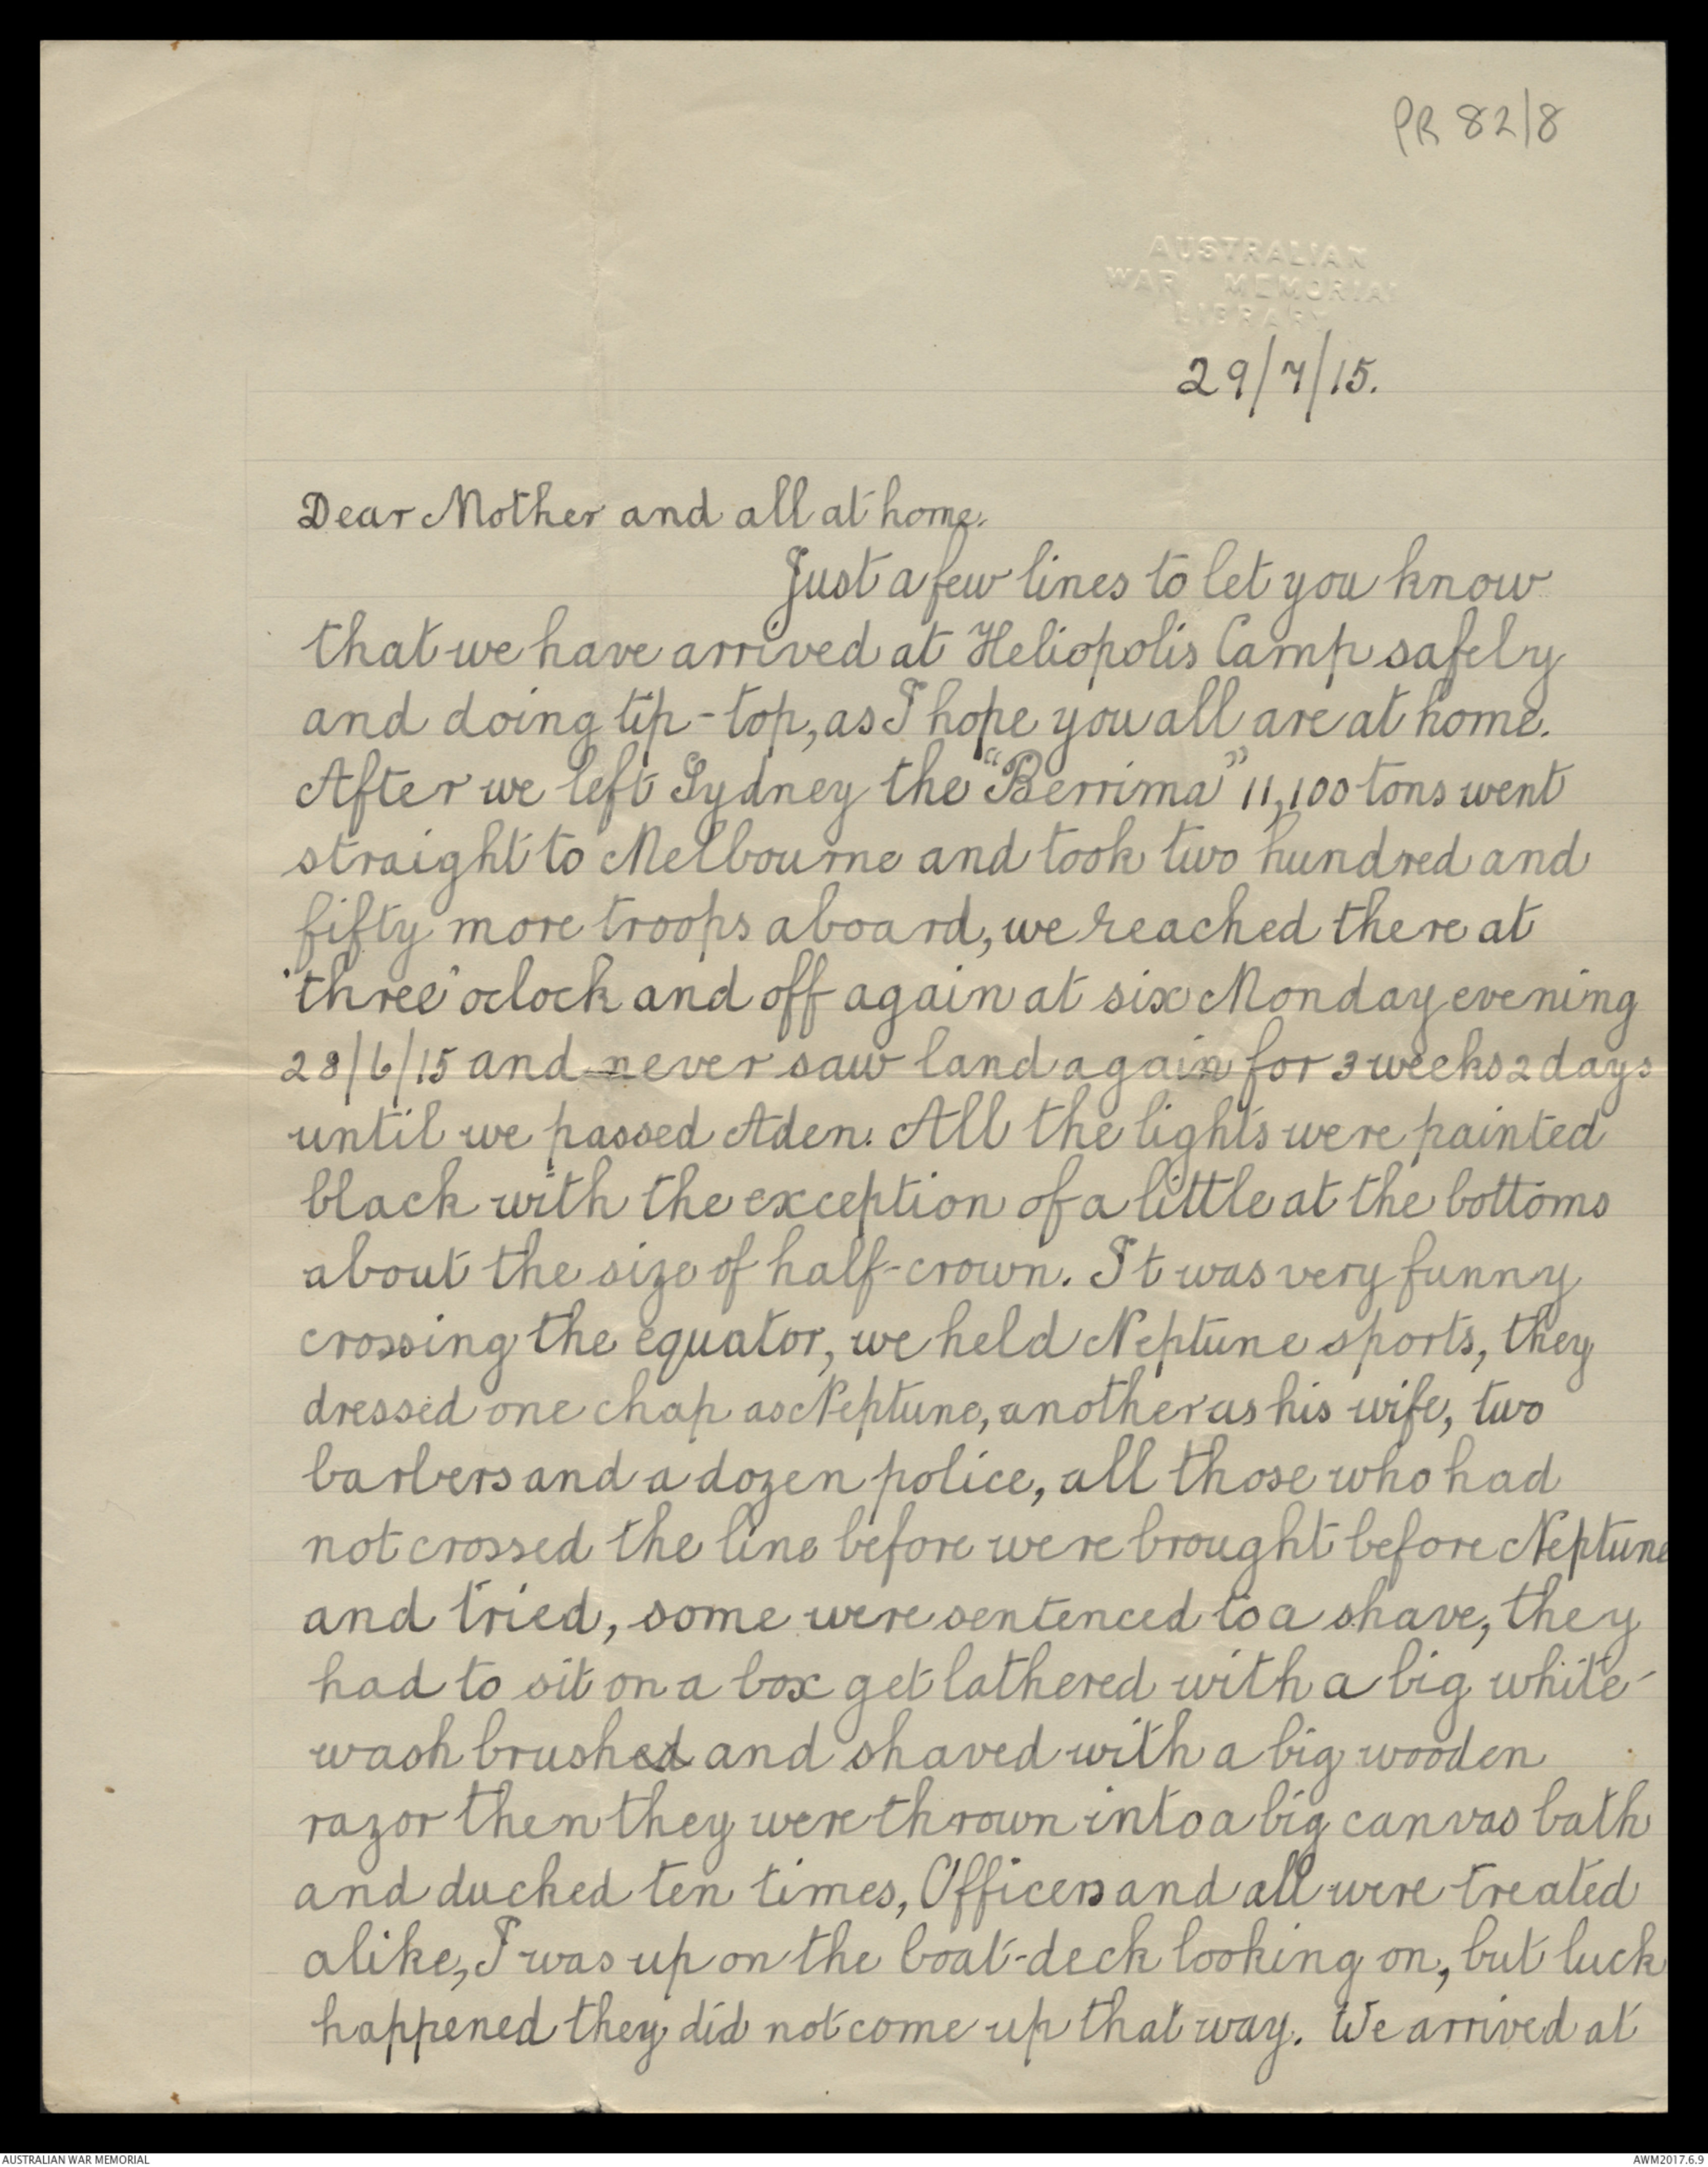 PR 82/8
AUSTRALIAN
WAR MEMORIAL
LIBRARY
29/7/15.
Dear Mother and all at home.
Just a few lines to let you know
that we have arrived at Heliopolis Camp safely
and doing tip-top, as I hope you all are at home.
After we left Sydney the "Berrima" 11,100 tons went
straight to Melbourne and took two hundred and
fifty more troops aboard, we reached there at
'three' oclock and off again at six Monday evening
28/6/15 and never saw land again for 3 weeks 2 days
until we passed Aden. All the lights were painted
black with the exception of a little at the bottoms
about the size of half-crown. It was very funny
crossing the equator, we held Neptune sports, they
dressed one chap as Neptune, another as his wife, two
barbers and a dozen police, all those who had
not crossed the line before were brought before Neptune
and tried, some were sentenced to a shave, they
had to sit on a box get lathered with a big white-
wash brushed and shaved with a big wooden
razor then they were thrown into a big canvas bath
and ducked ten times, Officers and all were treated
alike, I was up on the boat-deck looking on, but luck
happened they did not come up that way. We arrived at
AUSTRALIAN WAR MEMORIAL
AWM2017.6.9